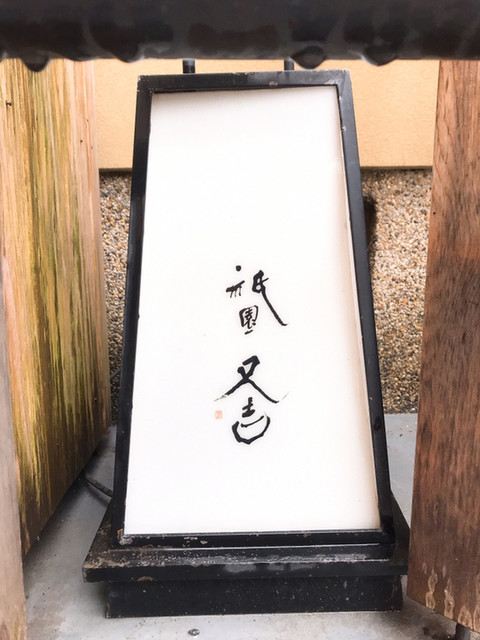 祇園
又吉